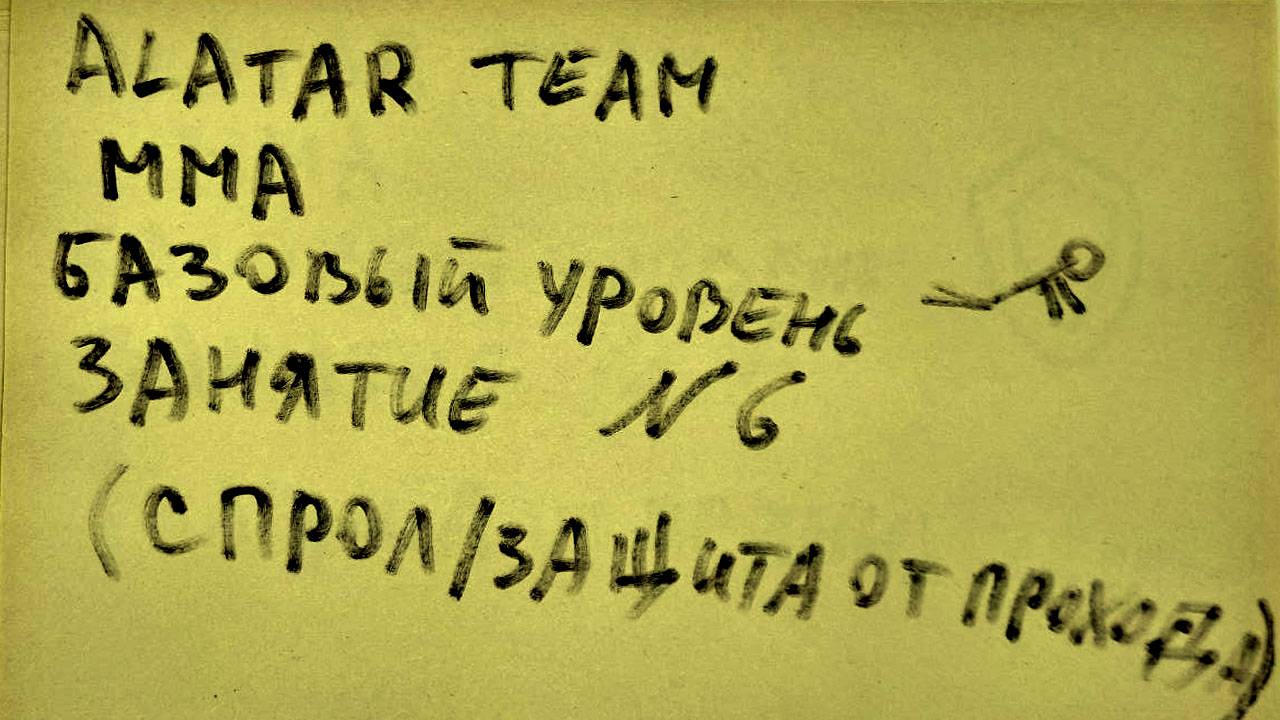 ALATAR TEAM
MMA
БАЗОВЫЙ УРОВЕНЬ
ЗАНЯТИЕ N 6
(СПРОЛ/ЗАЩИТА ОТ ПРОХОДА)